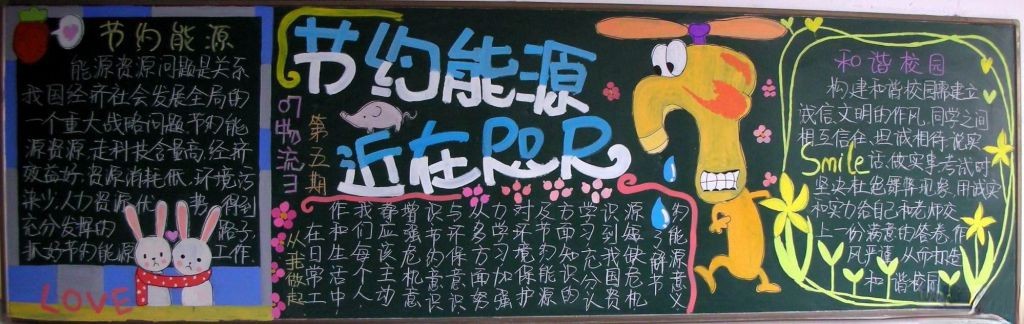 节约能源
能源资源问题是关系
我国经济社会发展全局的
一个重大战略问题.节约能
源资源.走科技含量高.经济
效益好.资源消耗低.环境污
染少.人力资源优势得到
充分发挥的路子
抓好节约能源工作
LOVE
节约能源
近在POP
07物流3
第五期
从我做起
约能源意义
了解节
源短缺危机
识到我国资
学习充分认
方面知识的
及节约能源
对环境保护
力学习加强
从多方面努
与环保意识
识节约意识
增强危机意
都应该主动
我们每个人
作和生活中
在日常工
和谐校园
构建和谐校园需建立
诚信.文明的作风.同学之间
相互信任.坦诚相待.说实
Smile
话.做实事.考试时
坚决杜绝舞弊现象.用诚实
和实力给自己和老师交
上一份满意的答卷.作
风井然.从而构造
和谐校园